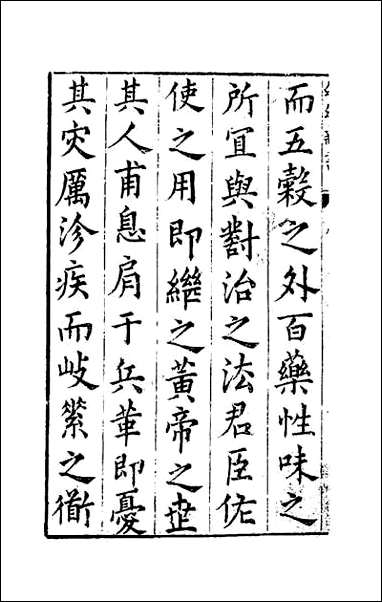 而五穀之外百藥性味之
所宜與對治之法君臣佐
使之用即繼之黃帝之世
其人甫息肩于兵革即憂
其灾厲沴疾而岐縈之衕